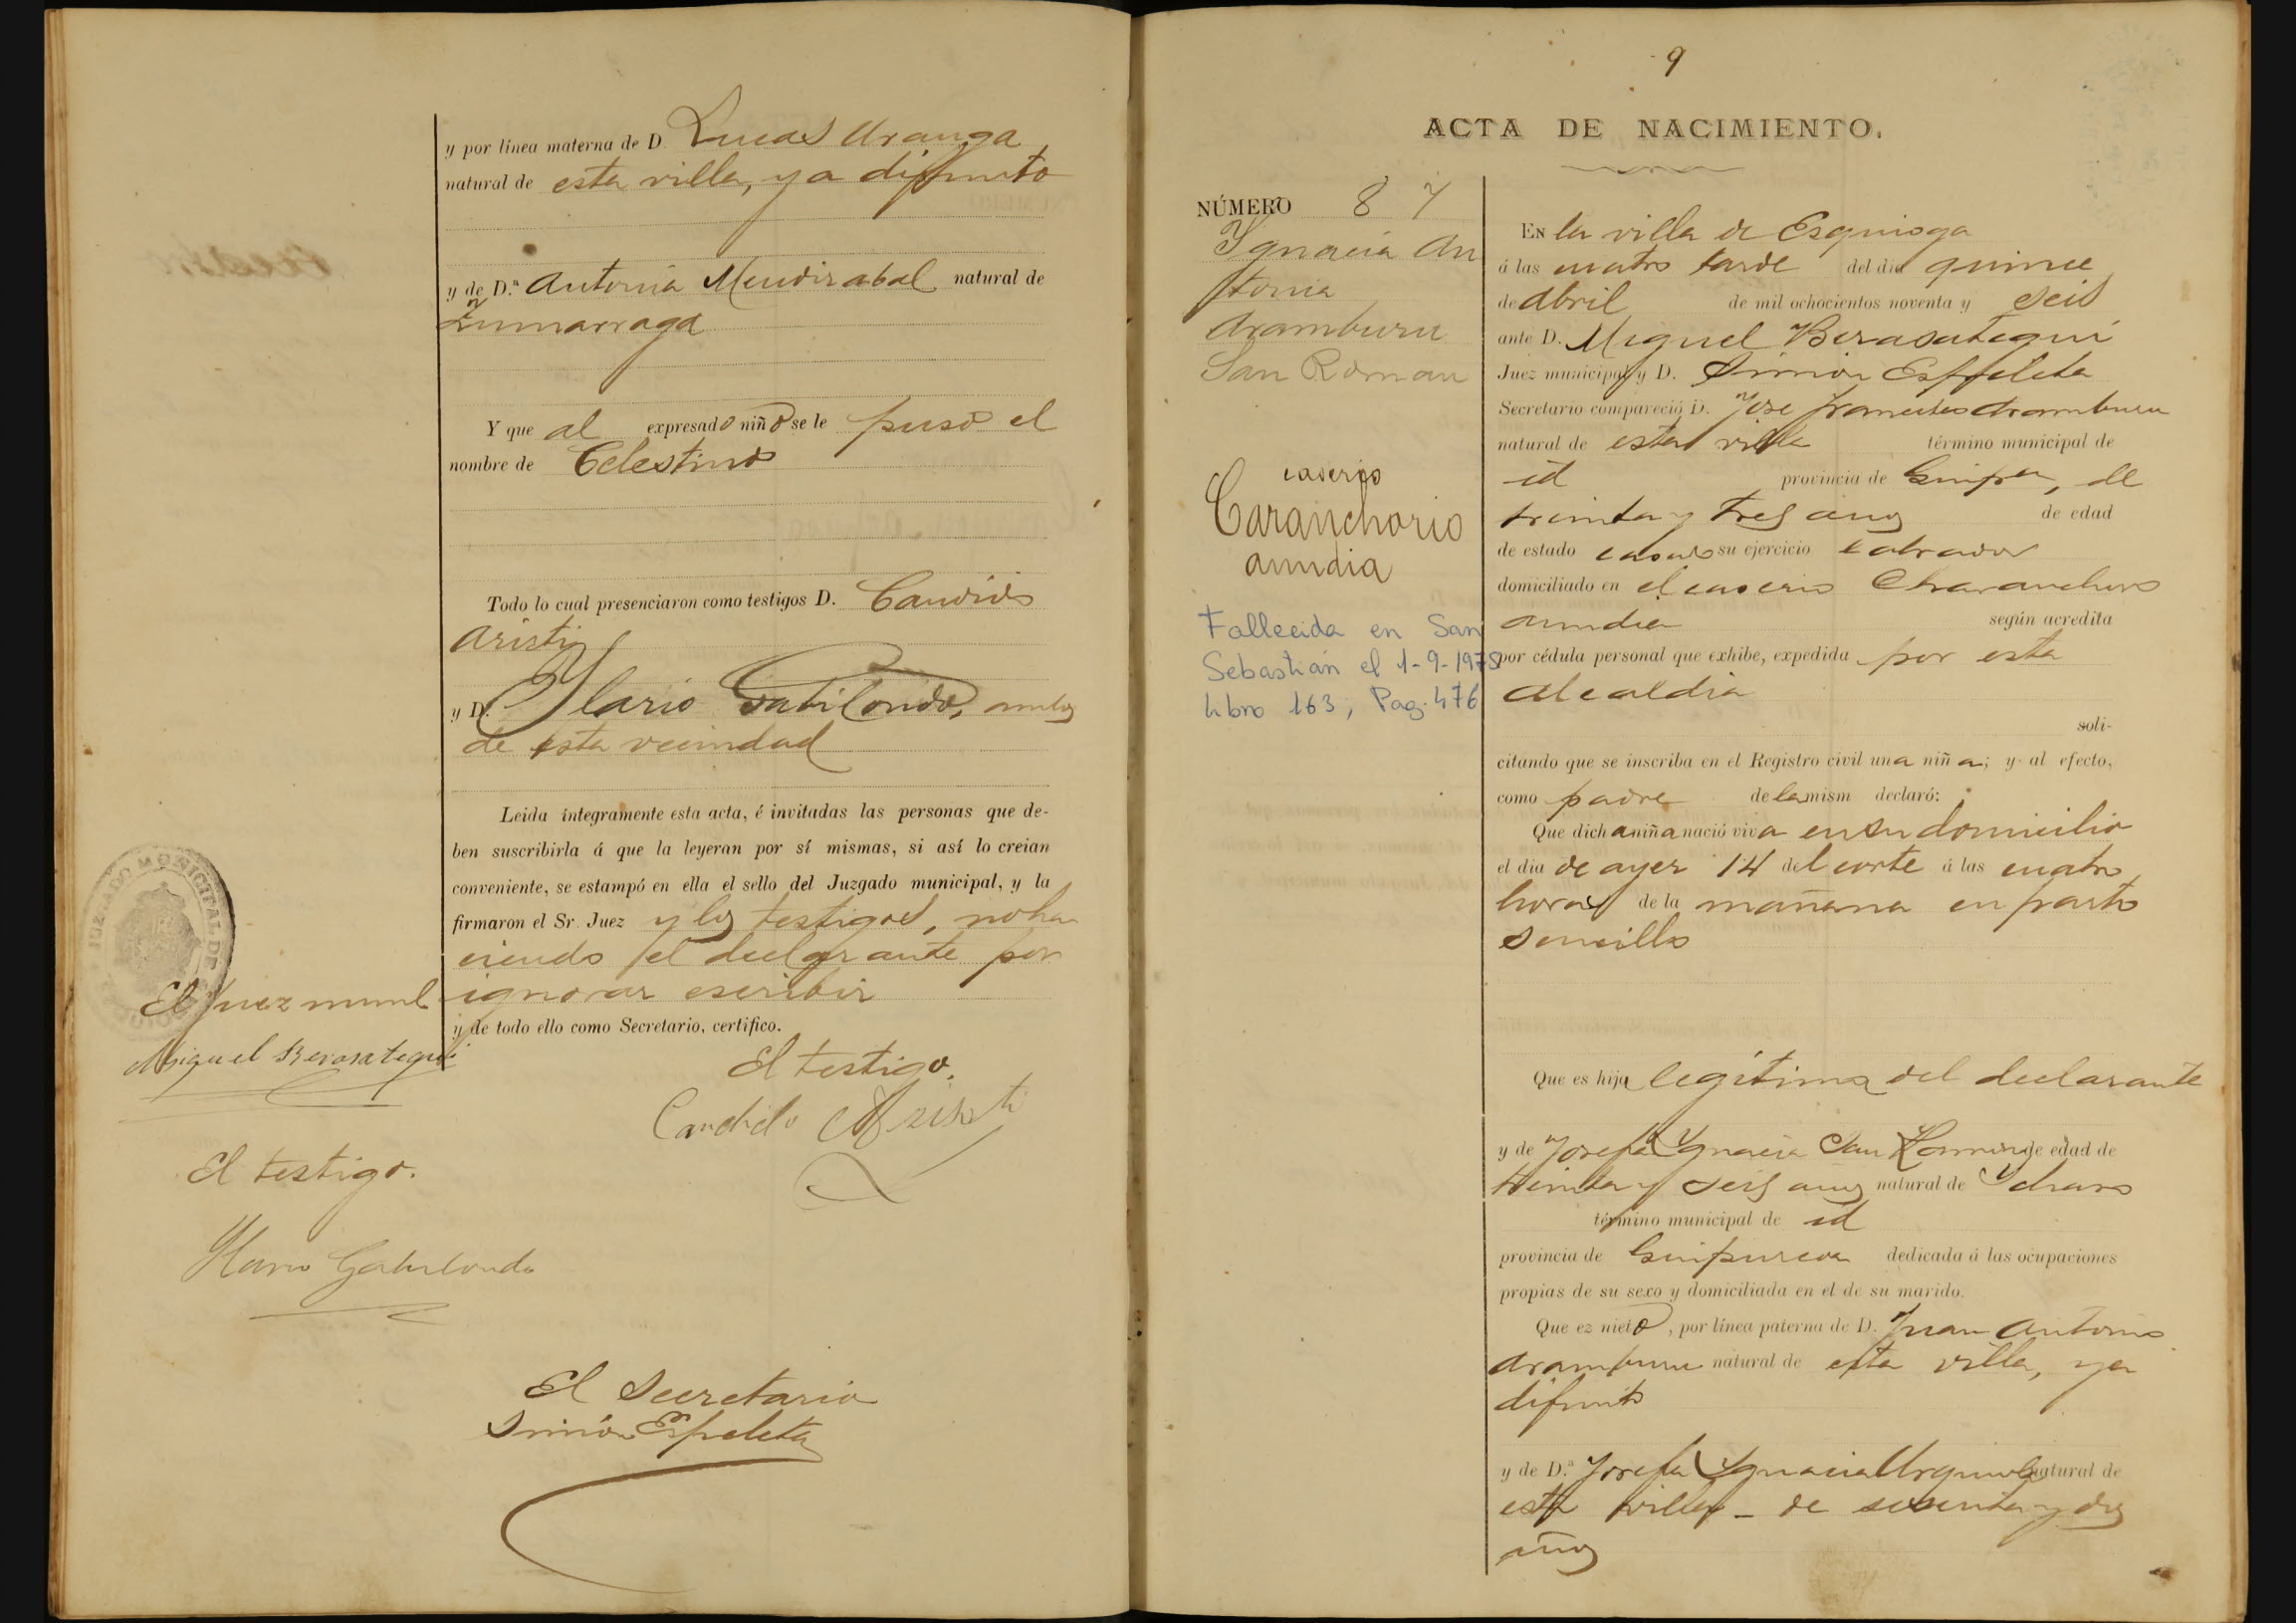 y por línea materna de D. Lucas Aranga
natural de esta villa, ya difunto
y de D.ª Antonia Mendirabal natural de
Zumarraga
Y que al expresado niño se le puso el
nombre de Celestino
Todo lo cual presenciaron como testigos D. Candido
Aristi
y D. Ylario Gabilondo, ambos
de esta vecindad
Leida íntegramente esta acta, é invitadas las personas que de-
ben suscribirla á que la leyeran por sí mismas, si así lo creian
conveniente, se estampó en ella el sello del Juzgado municipal, y la
firmaron el Sr. Juez y los testigos, no ha
ciendo el declarante por
ignorar escribir
y de todo ello como Secretario, certifico.
JUZGADO MUNICIPAL DE
El Juez munl
Miguel Berasategui
El testigo.
Candido Aristi
El testigo.
Ylario Gabilondo
El Secretario
Simón Espeleta
9
ACTA DE NACIMIENTO.
NÚMERO 87
Ygnacia An
tonia
Aramburu
San Roman
caserio
Caranchorio
aundia
Fallecida en San
Sebastián el 1-9-1975
Libro 163, Pag. 476
EN la villa de Esquioga
á las cuatro tarde del dia quince
de Abril de mil ochocientos noventa y seis
ante D. Miguel Berasategui
Juez municipal y D. Simón Espeleta
Secretario compareció D. José Francisco Aramburu
natural de esta villa término municipal de
id provincia de Guipra, de
treinta y tres años de edad
de estado casado su ejercicio labrador
domiciliado en el caserio Charanchoro
aundia según acredita
por cédula personal que exhibe, expedida por esta
Alcaldia
soli-
citando que se inscriba en el Registro civil una niña; y al efecto,
como padre de la mism declaró:
Que dicha niña nació viva en su domicilio
el dia de ayer 14 del corte á las cuatro
horas de la mañana en parto
sencillo
Que es hija legítima del declarante
y de Josefa Ygnacia San Roman de edad de
treinta y seis años natural de Ychaso
término municipal de id
provincia de Guipuzcoa dedicada á las ocupaciones
propias de su sexo y domiciliada en el de su marido.
Que ez nieto, por línea paterna de D. Juan Antonio
Aramburu natural de esta villa, ya
difunto
y de D.ª Josefa Ygnacia Urquiola natural de
esta villa - de sesenta y dos
años